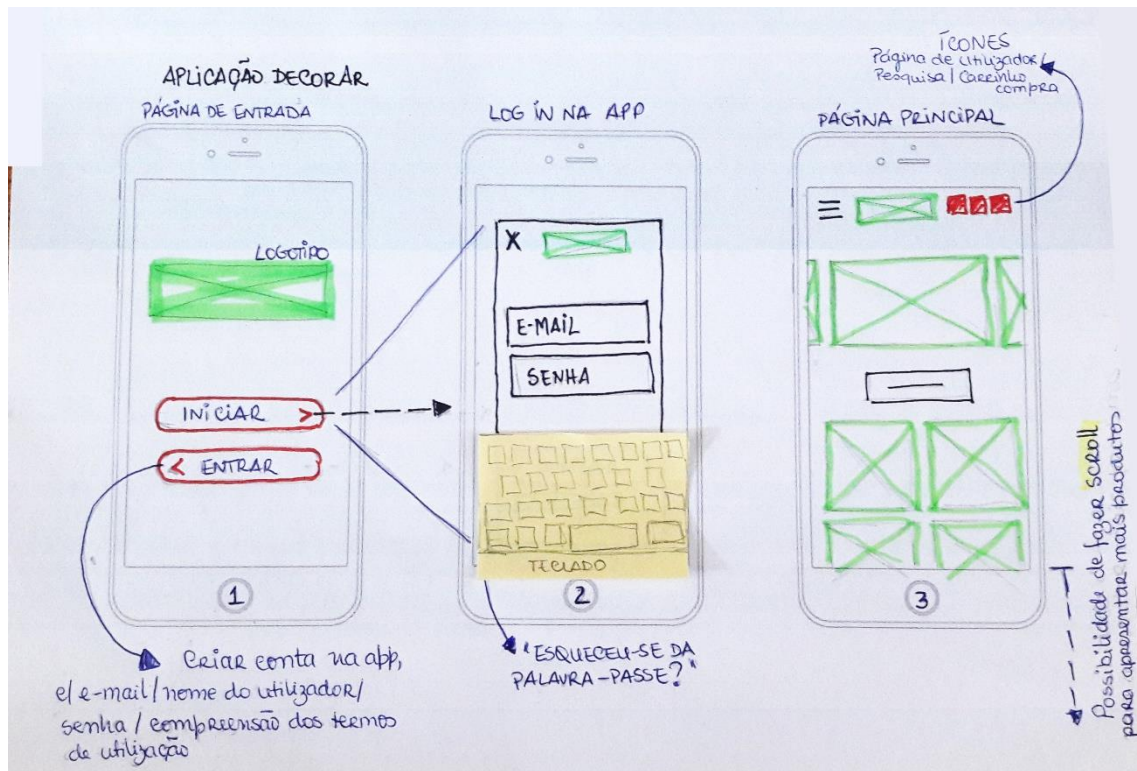 APLICAÇÃO DECORAR
PÁGINA DE ENTRADA
LOGOTIPO
INICIAR >
< ENTRAR
1
Criar conta na app,
c/ e-mail / nome do utilizador /
senha / compreensão dos termos
de utilização
LOG IN NA APP
X
E-MAIL
SENHA
TECLADO
2
"ESQUECEU-SE DA
PALAVRA-PASSE?"
ÍCONES
Página de utilizador /
Pesquisa / Carrinho
compra
PÁGINA PRINCIPAL
3
Possibilidade de fazer scroll
para apresentar mais produtos